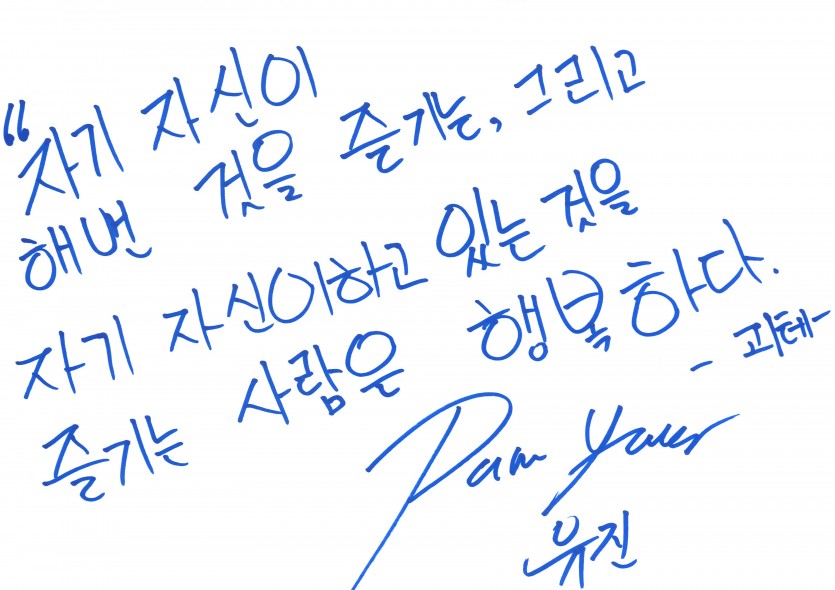 "자기 자신이
해본 것을 즐기는, 그리고
자기 자신이하고 있는 것을
즐기는 사람은 행복하다.
- 괴테-
유진